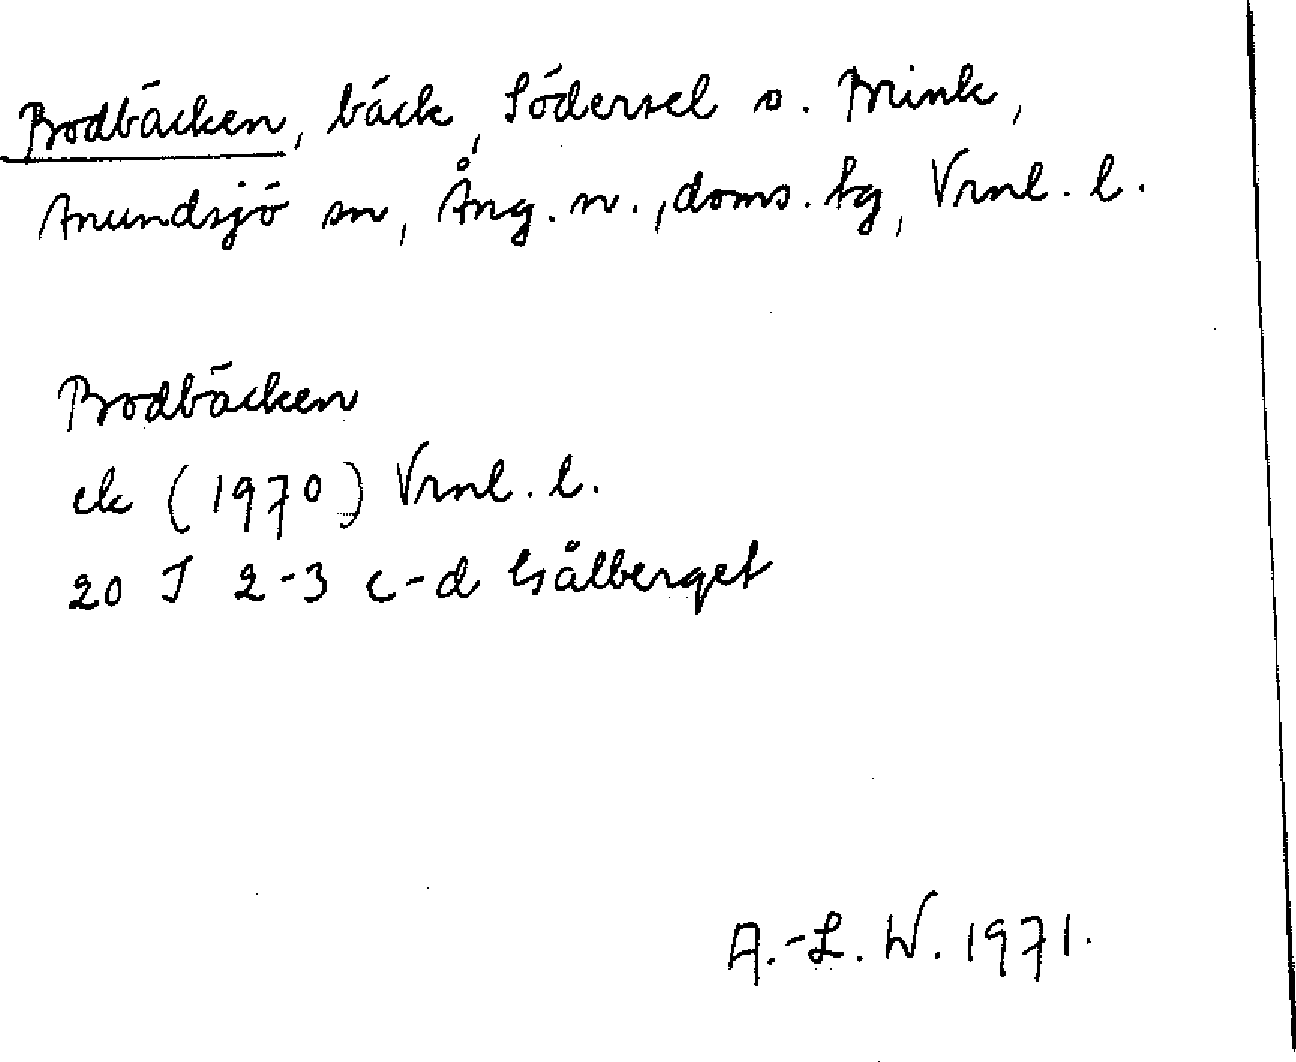 Bodbäcken, bäck, Södersel o. Brink,
Anundsjö sn, Ång. n., doms. tg, Vrnl. l.
Bodbäcken
ek (1970) Vrnl. l.
20 J 2-3 c-d Gsålberget
A.-L. W. 1971.